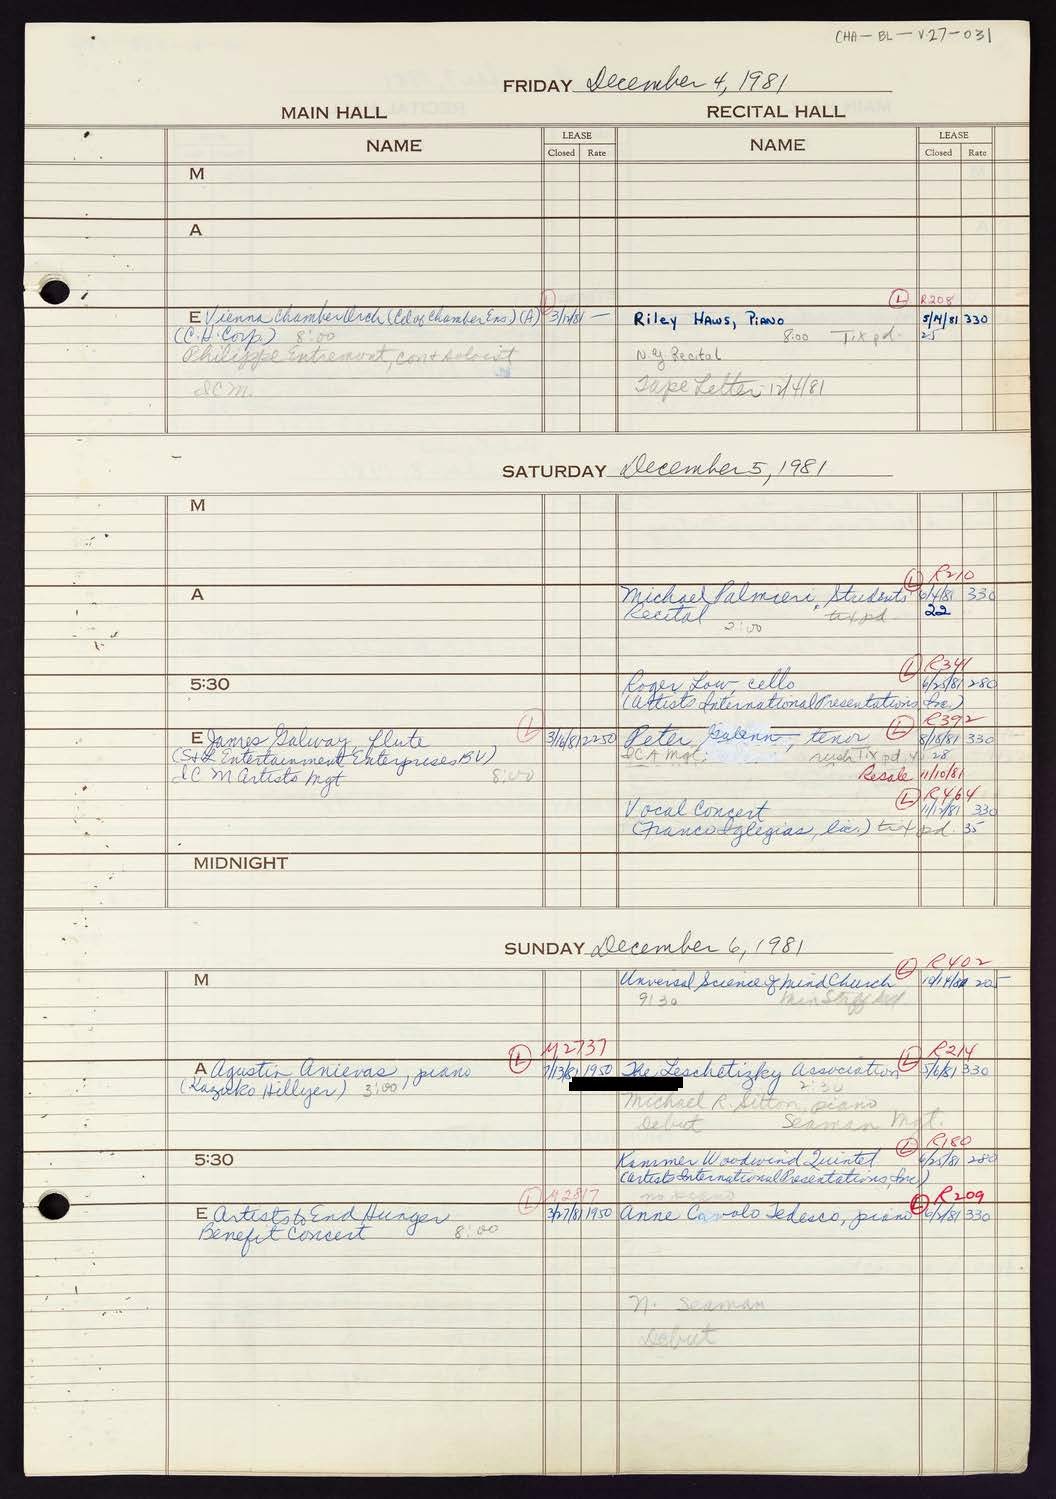 CHA-BL-V.27-031
FRIDAY December 4, 1981
MAIN HALL RECITAL HALL
NAME LEASE NAME LEASE
Closed Rate Closed Rate
M
A
L R208
E Vienna Chamber Orch (Col of Chamber Ens) (A) L 3/17/81 — Riley Haws, Piano 5/14/81 330
(C.H. Corp.) 8:00 8:00 Tix pd 25
Philippe Entremont, con + soloist N.Y. Recital
ICM. Tape Letter 12/4/81
SATURDAY December 5, 1981
M
L R210
A Michael Palmieri, Students 6/4/81 330
Recital 2:00 tix pd 22
L R341
5:30 Roger Low, cello 6/25/81 280
(Artists International Presentations, Inc.)
L R392
E James Galway flute L 3/16/81 2250 Peter, tenor 8/18/81 330
(S+L Entertainment Enterprises BV) Mgt. Tix pd 28
ICM Artists Mgt 8:00 Resale 11/10/81
L R464
Vocal Concert 11/12/81 330
(Franco Iglegias, lic.) tix pd. 35
MIDNIGHT
SUNDAY December 6, 1981
L R402
M Universal Science of Mind Church 205
9:30 Min Staff
L M2737 L R214
A Agustin Anievas, piano 7/13/81 1950 The Leschetizky Association 5/6/81 330
(Kazuko Hillyer) 3:00 2:30
Michael R. Sitton, piano
Debut Seaman Mgt.
L R180
5:30 Kammer Woodwind Quintet 6/25/81 280
(Artists International Presentations, Inc)
no piano
L M2817 L R209
E Artists to End Hunger 3/27/81 1950 Anne Cavalo Tedesco, piano 6/2/81 330
Benefit Concert 8:00
N. Seaman
Debut